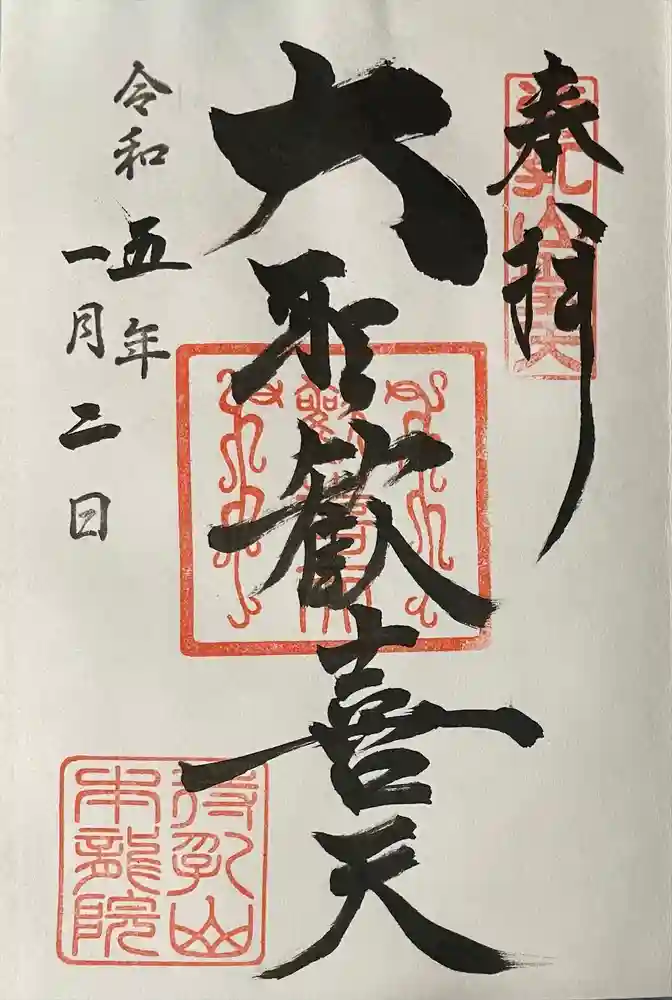 奉拝
待乳山聖天
大聖歓喜天
令和五年
一月二日
待乳山
本龍院